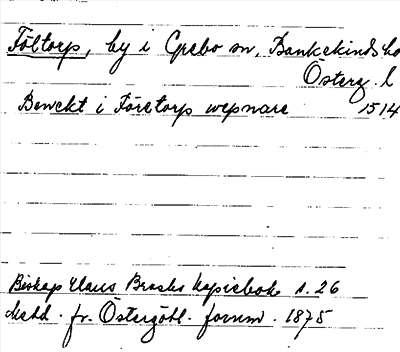 Föltorp, by i Grebo sn, Bankekinds ho
Österg. l
Benekt i Företorp wepnare 1514
Biskop Hans Brasks kopiebok s. 26
Medd. fr. Östergötl. fornm. 1875